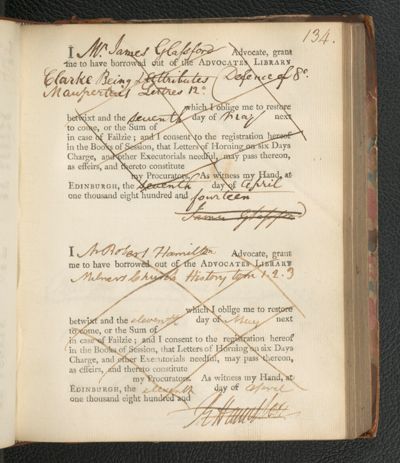 134.
I Mr James Glassford Advocate, grant
me to have borrowed out of the ADVOCATES LIBRARY
Clarke Being & Attributes Defence of 8o.
Maupertuis Lettres 12o.
which I oblige me to restore
betwixt and the seventh day of May next
to come, or the Sum of
in case of Failzie; and I consent to the registration hereof
in the Books of Session, that Letters of Horning on six Days
Charge, and other Executorials needful, may pass thereon,
as effeirs, and thereto constitute
my Procurators. As witness my Hand, at
EDINBURGH, the seventh day of April
one thousand eight hundred and fourteen
James Glassford
I Mr Robert Hamilton Advocate, grant
me to have borrowed out of the ADVOCATES LIBRARY
Milners Church History tom 1. 2. 3
which I oblige me to restore
betwixt and the eleventh day of May next
to come, or the Sum of
in case of Failzie; and I consent to the registration hereof
in the Books of Session, that Letters of Horning on six Days
Charge, and other Executorials needful, may pass thereon,
as effeirs, and thereto constitute
my Procurators. As witness my Hand, at
EDINBURGH, the eleventh day of April
one thousand eight hundred and
Rt Hamilton